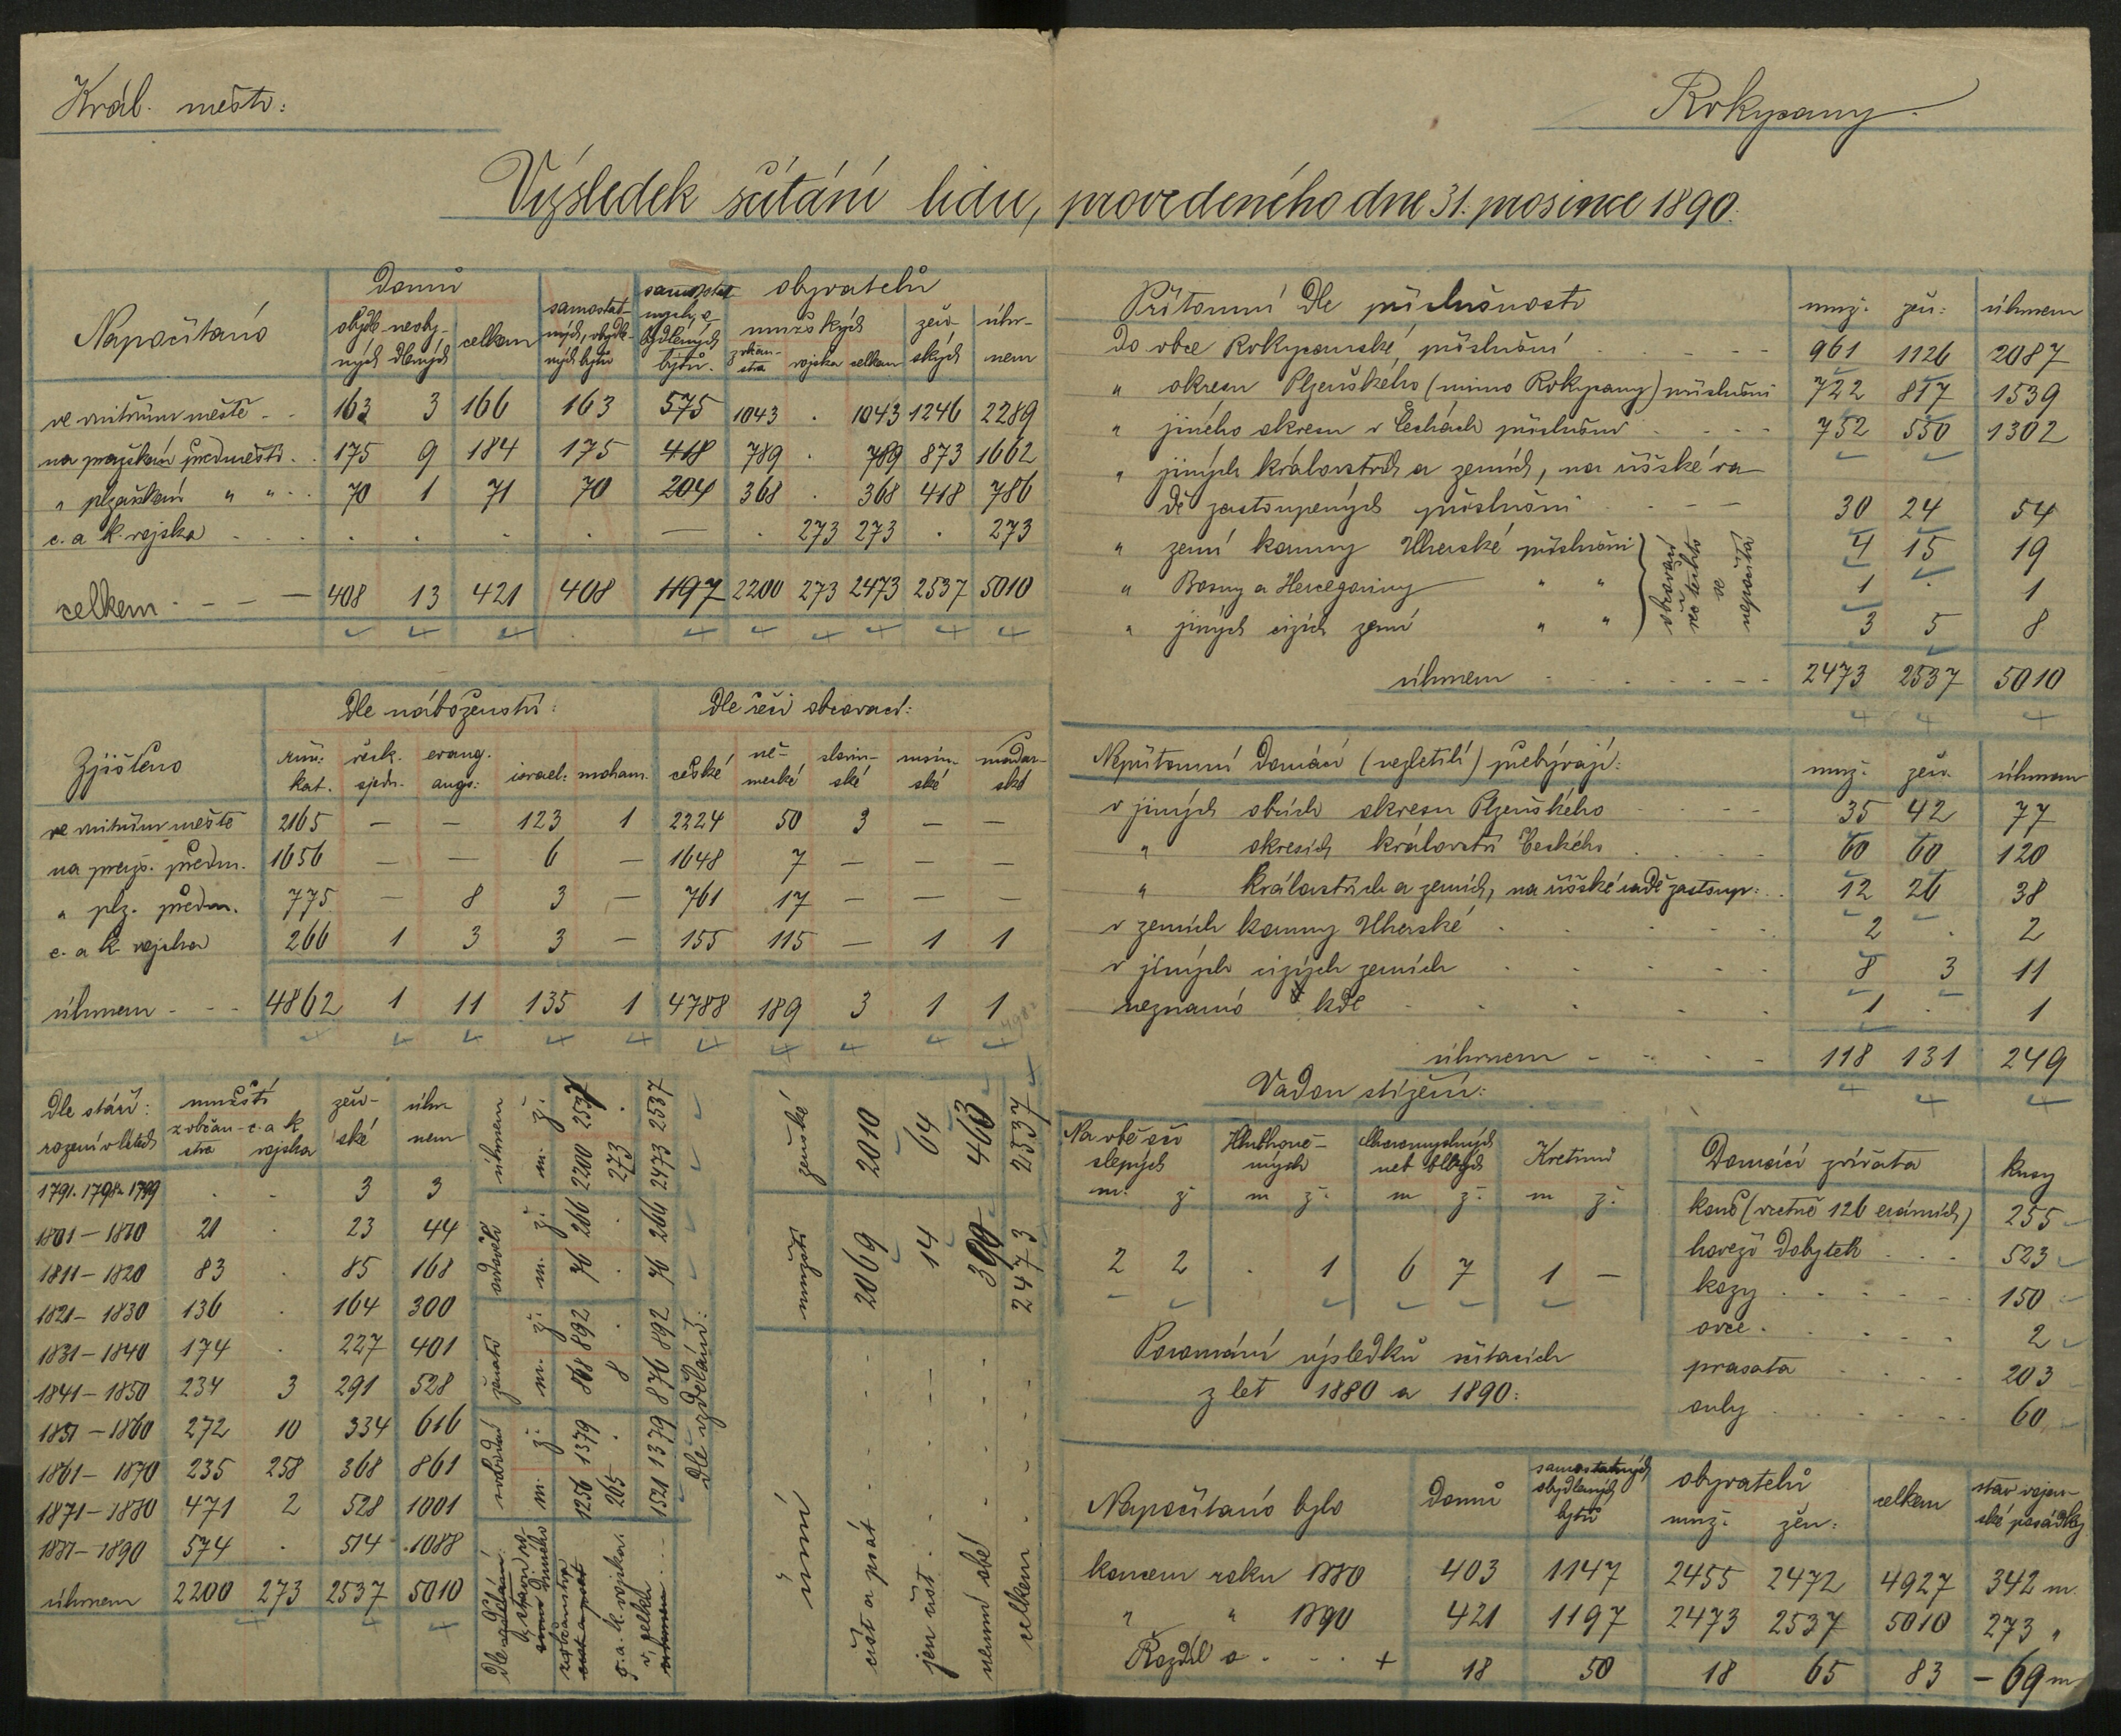 Král. město:
Rokycany.
Výsledek sčítání lidu, provedeného dne 31. prosince 1890.
Napočítáno
Domů
obydle- ných
neoby- dlených
celkem
samostat- ných, obydle- ných bytů
samostat- ných, o- bydlených bytů.
obyvatelů
mužských
z občan- stva
vojska
celkem
žen- ských
úhr- nem
ve vnitřním městě . . 163 3 166 163 575 1043 . 1043 1246 2289
na pražském předměstí . . 175 9 184 175 418 789 . 789 873 1662
" plzeňském " " . . 70 1 71 70 204 368 . 368 418 786
c. a k. vojska . . . . . . . — . 273 273 . 273
celkem . — — — 408 13 421 408 1197 2200 273 2473 2537 5010
Zjištěno
Dle náboženství:
Dle řeči obcovací:
řím. kat.
řeck. sjedn.
evang. augs:
israel:
moham.
české
ně- mecké
slovin- ské
rusín- ské
maďar- ské
ve vnitřním městě 2165 — — 123 1 2224 50 3 — —
na praž. předm. 1656 — — 6 — 1648 7 — — —
" plz. předm. 775 — 8 3 — 761 17 — — —
c. a k. vojska 266 1 3 3 — 155 115 — 1 1
úhrnem - - - 4862 1 11 135 1 4788 189 3 1 1
Dle stáří:
rození v letech
mužští
z občan- stva
c. a k. vojska
žen- ské
úhr nem
1791. 1798 a 1799 . . 3 3
1801 — 1810 21 . 23 44
1811 — 1820 83 . 85 168
1821 — 1830 136 . 164 300
1831 — 1840 174 . 227 401
1841 — 1850 234 3 291 528
1851 — 1860 272 10 334 616
1861 — 1870 235 258 368 861
1871 — 1880 471 2 528 1001
1881 — 1890 574 . 514 1088
úhrnem 2200 273 2537 5010
svobodní
ženatí
ovdovělí
úhrnem
m. ž. m. ž. m. ž. m. ž.
z občanstva 1256 1379 868 892 76 266 2200 2537
c. a k. vojska 265 . 8 . . . 273 .
v celku . . . 1521 1379 876 892 76 266 2473 2537
Dle vzdělání:
umí
mužští
ženské
číst a psát - - - 2069 2010
jen číst . . - - 14 64
neumí obé - - - 390 463
celkem . - - - 2473 2537
Přítomní dle příslušnosti muž. žen: úhrnem
do obce Rokycanské, příslušní . - - - 961 1126 2087
" okresu Plzeňského (mimo Rokycany) příslušní 722 817 1539
" jiného okresu v Čechách příslušní . - - - 752 550 1302
" jiných královstvích a zemích, na říšské ra-
dě zastoupených příslušní . - - - 30 24 54
" zemí koruny Uherské příslušní 4 15 19
" Bosny a Hercegoviny " " 1 . 1
" jiných cizích zemí " " 3 5 8
obcovací řeč těchto se nepočítá
úhrnem - - - - - - 2473 2537 5010
Nepřítomní domácí (nezletilí) přebývají: muž. žen. úhrnem
v jiných obcích okresu Plzeňského . . . 35 42 77
" okresích království Českého . . . . 60 60 120
" královstvích a zemích, na říšské radě zastoup: . . 12 26 38
v zemích koruny Uherské . . . . . 2 . 2
v jiných cizích zemích . . . . . 8 3 11
neznámo kde . . . . . 1 . 1
úhrnem - - - - 118 131 249
Vadou stížení:
Na obě oči slepých
Hluchoně- mých
Choromyslných neb blbých
Kretinů
m. ž. m ž. m ž. m ž.
2 2 . 1 6 7 1 —
Domácí zvířata kusy
koně (včetně 126 erárních) 255
hovězí dobytek . . . 523
kozy . . . . . 150
ovce . . . . . 2
prasata . . . . 203
ouly . . . . . 60
Porovnání výsledků sčítacích
z let 1880 a 1890:
Napočítáno bylo
Domů
samostatných obydlených bytů
obyvatelů
muž. žen:
celkem
stav vojen- ské posádky
koncem roku 1880 403 1147 2455 2472 4927 342 m.
" " 1890 421 1197 2473 2537 5010 273 "
Rozdíl o . . . + 18 50 18 65 83 — 69 m